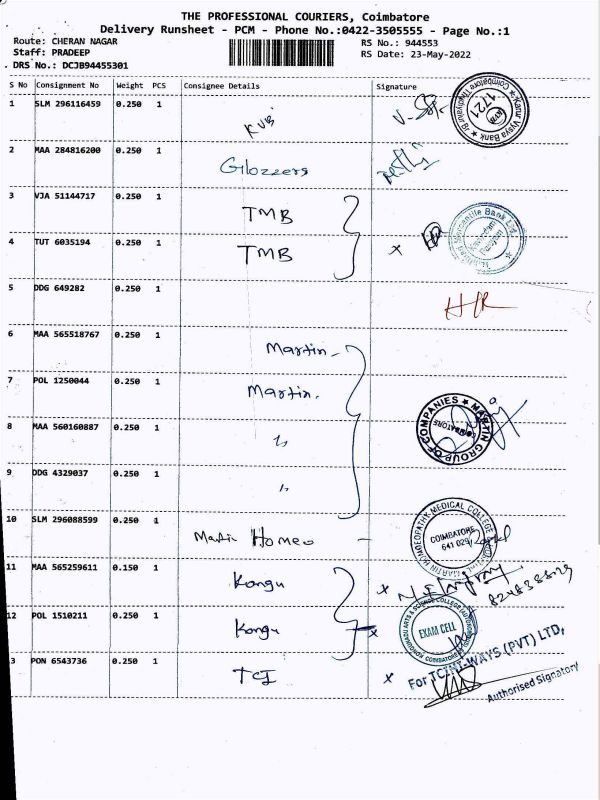 THE PROFESSIONAL COURIERS, Coimbatore
Delivery Runsheet - PCM - Phone No.:0422-3505555 - Page No.:1
Route: CHERAN NAGAR
RS No.: 944553
Staff: PRADEEP
RS Date: 23-May-2022
DRS No.: DCJB94455301
S No Consignment No Weight PCS Consignee Details Signature
1 SLM 296116459 0.250 1 KVB
Karur Vysya Bank
1721
2 MAA 284816200 0.250 1 Glozzers
3 VJA 51144717 0.250 1 TMB
Mercantile Bank Ltd
4 TUT 6035194 0.250 1 TMB x
5 DDG 649282 0.250 1
6 MAA 565518767 0.250 1 Martin
7 POL 1250044 0.250 1 Martin.
MARTIN GROUP OF COMPANIES
COIMBATORE
8 MAA 560160887 0.250 1 "
9 DDG 4329037 0.250 1 "
10 SLM 296088599 0.250 1 Martin Homeo
MARTIN HOMOEOPATHY MEDICAL COLLEGE
COIMBATORE
641 029
11 MAA 565259611 0.150 1 Kongu x
12 POL 1510211 0.250 1 Kongu x
ARTS & SCIENCE COLLEGE
EXAM CELL
COIMBATORE
13 PON 6543736 0.250 1 TCI x
For TCINT-WAYS (PVT) LTD,
Authorised Signatory